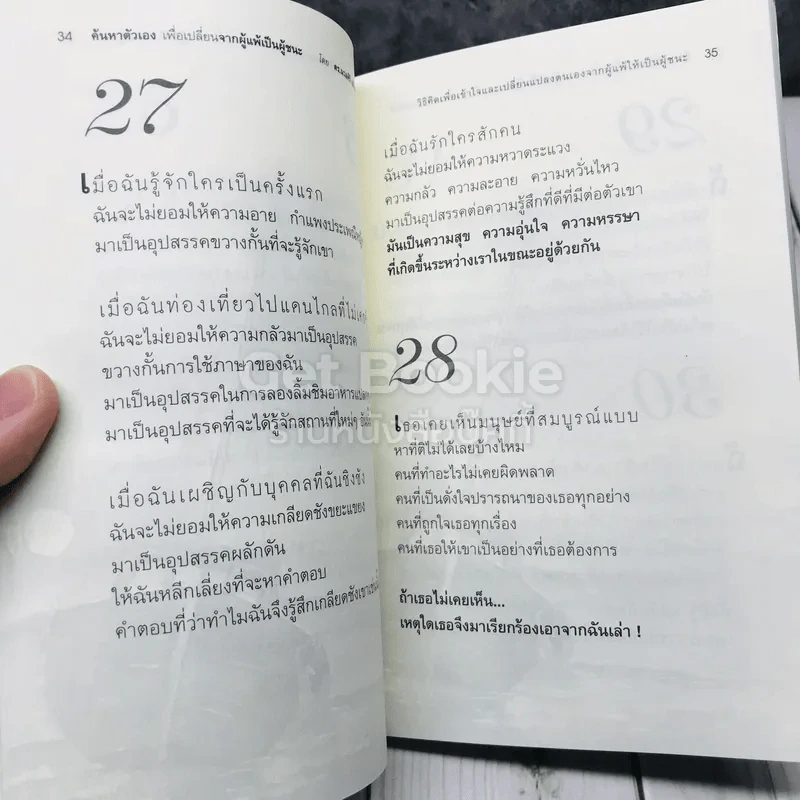 34 ค้นหาตัวเอง เพื่อเปลี่ยนจากผู้แพ้เป็นผู้ชนะ
โดย
27
เมื่อฉันรู้จักใครเป็นครั้งแรก
ฉันจะไม่ยอมให้ความอาย กำแพงประเพณี
มาเป็นอุปสรรคขวางกั้นที่จะรู้จักเขา
เมื่อฉันท่องเที่ยวไปแดนไกลที่
ฉันจะไม่ยอมให้ความกลัวมาเป็นอุปสรรค
ขวางกั้นการใช้ภาษาของฉัน
มาเป็นอุปสรรคในการลองลิ้มชิมอาหาร
มาเป็นอุปสรรคที่จะได้รู้จักสถานที่ใหม่ๆ
เมื่อฉันเผชิญกับบุคคลที่ฉันชิงชัง
ฉันจะไม่ยอมให้ความเกลียดชังขยะแขยง
มาเป็นอุปสรรคผลักดัน
ให้ฉันหลีกเลี่ยงที่จะหาคำตอบ
คำตอบที่ว่าทำไมฉันจึงรู้สึกเกลียดชังเขา
วิธีคิดเพื่อเข้าใจและเปลี่ยนแปลงตนเองจากผู้แพ้ให้เป็นผู้ชนะ 35
เมื่อฉันรักใครสักคน
ฉันจะไม่ยอมให้ความหวาดระแวง
ความกลัว ความละอาย ความหวั่นไหว
มาเป็นอุปสรรคต่อความรู้สึกที่ดีที่มีต่อตัวเขา
มันเป็นความสุข ความอุ่นใจ ความหรรษา
ที่เกิดขึ้นระหว่างเราในขณะอยู่ด้วยกัน
28
เธอเคยเห็นมนุษย์ที่สมบูรณ์แบบ
หาที่ติไม่ได้เลยบ้างไหม
คนที่ทำอะไรไม่เคยผิดพลาด
คนที่เป็นดั่งใจปรารถนาของเธอทุกอย่าง
คนที่ถูกใจเธอทุกเรื่อง
คนที่เธอให้เขาเป็นอย่างที่เธอต้องการ
ถ้าเธอไม่เคยเห็น...
เหตุใดเธอจึงมาเรียกร้องเอาจากฉันเล่า !
Get Bookie